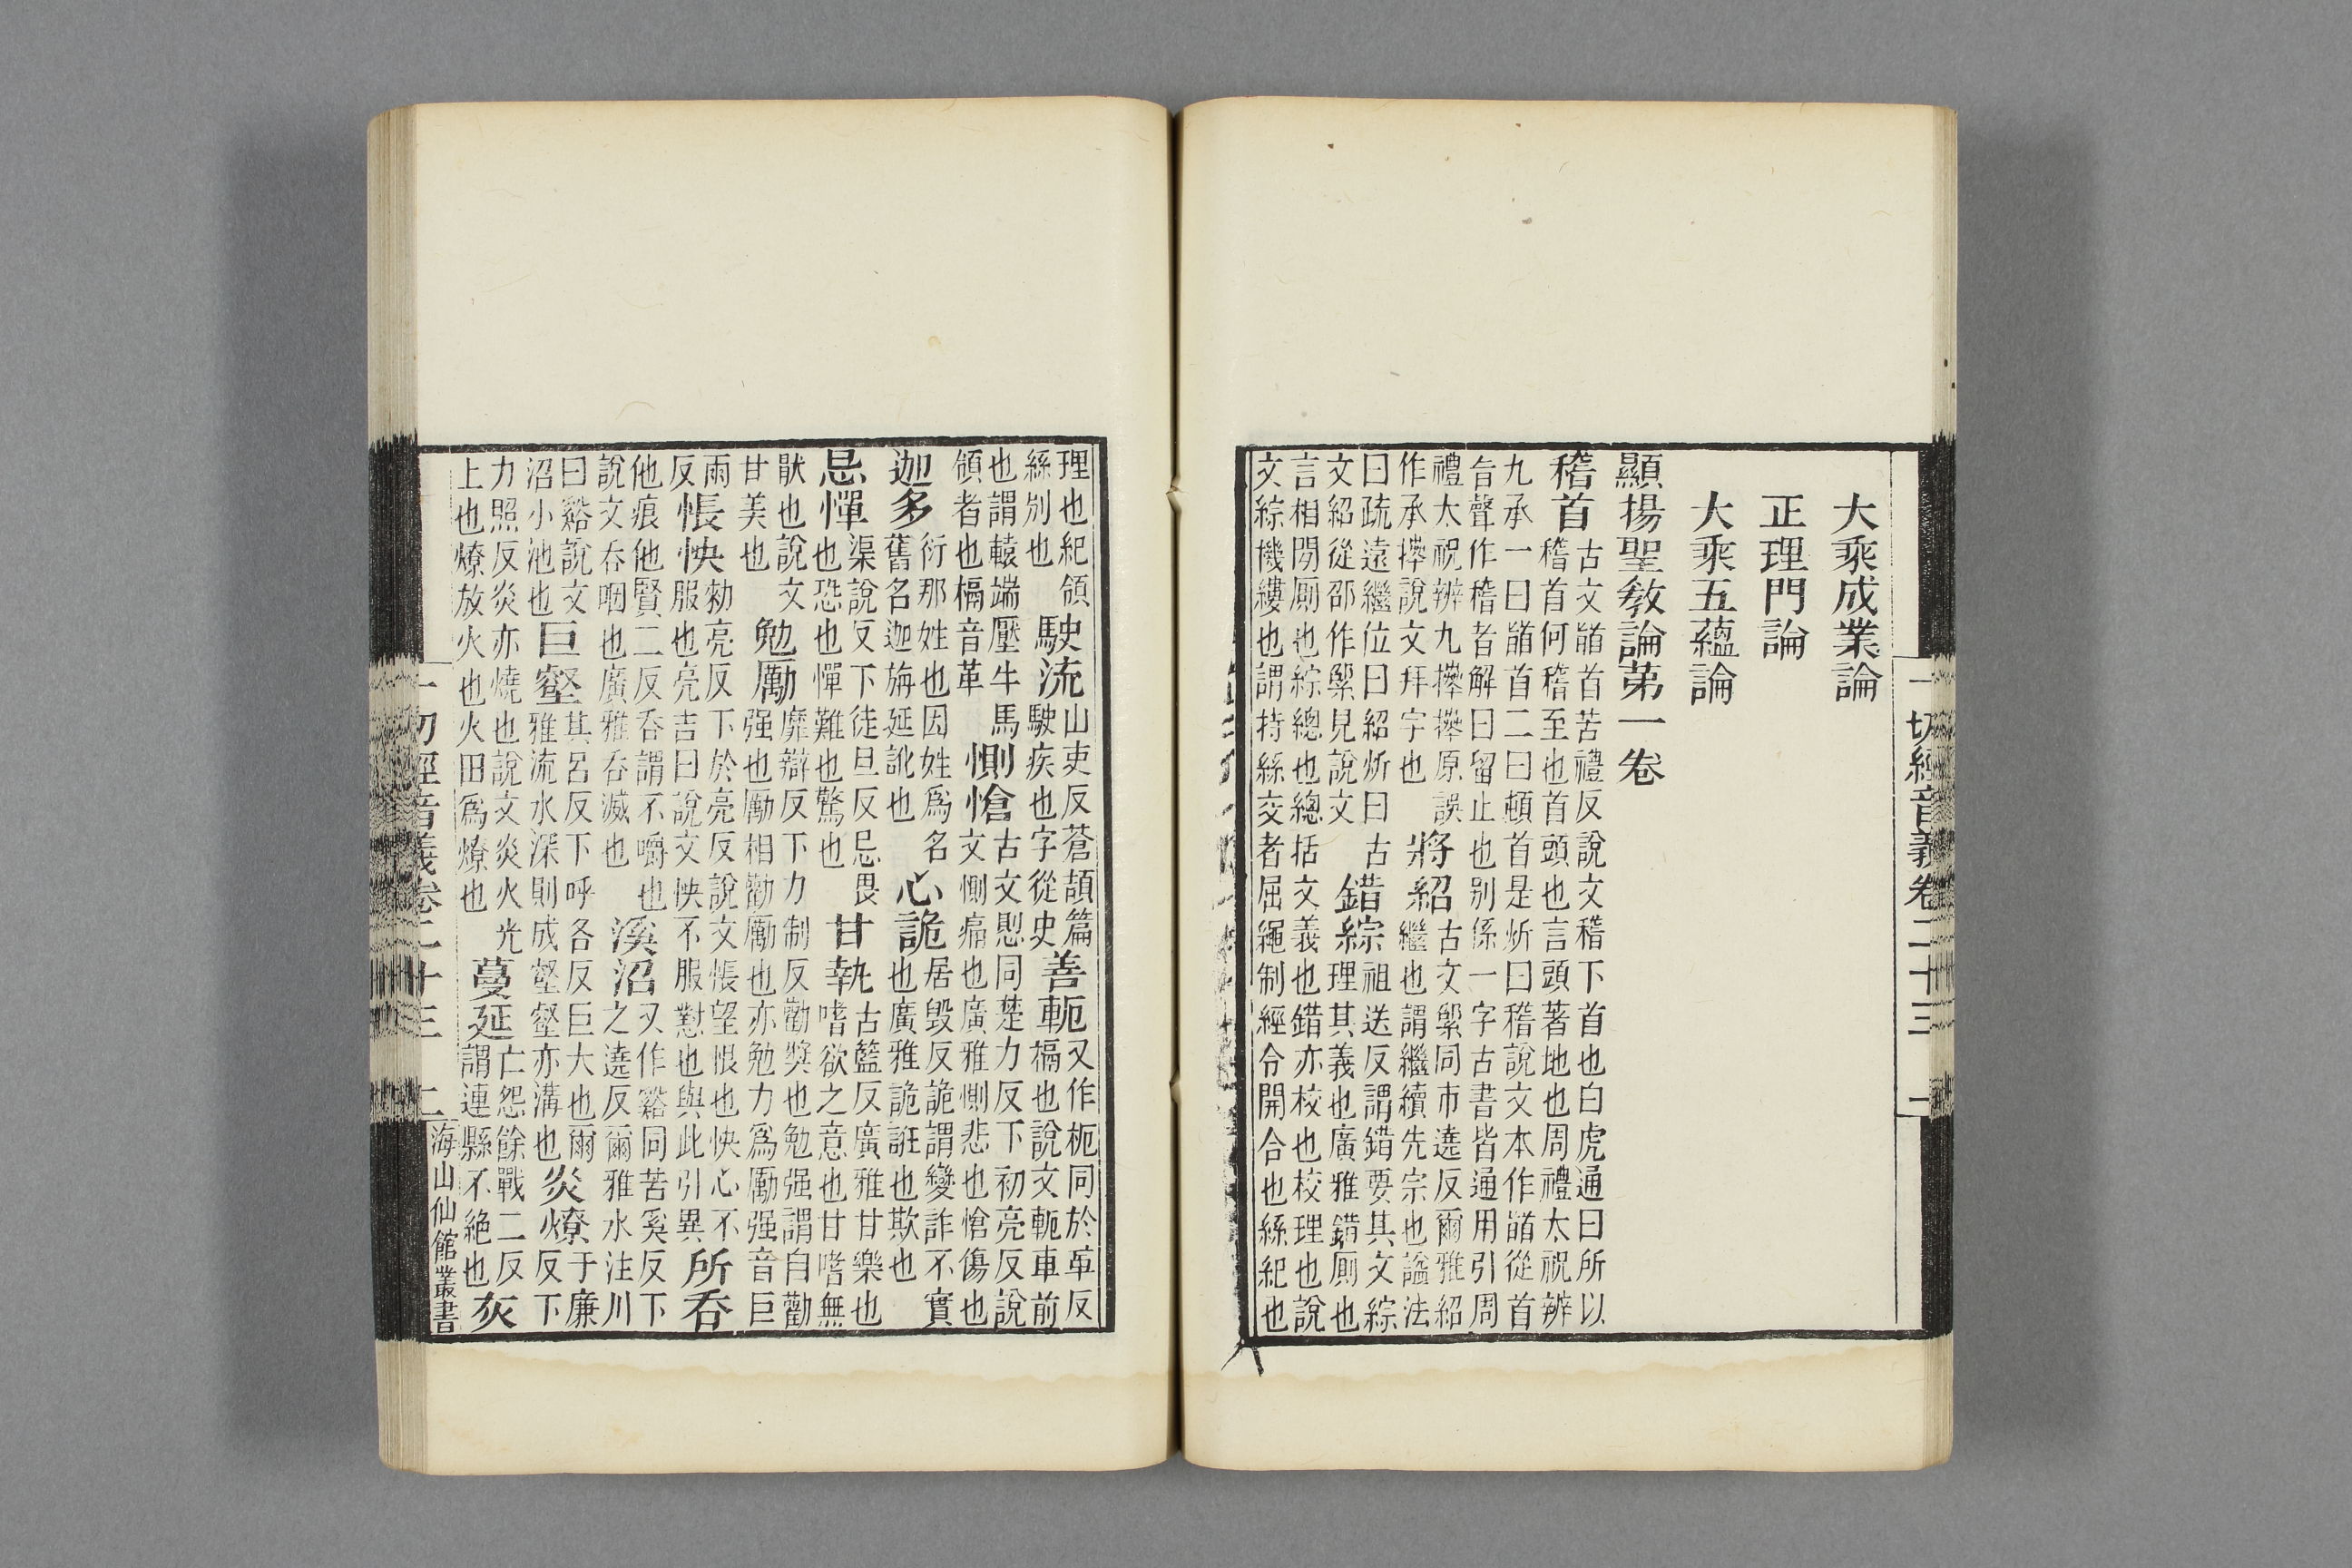 一切經音義卷二十三 一
大乘成業論
正理門論
大乘五蘊論
顯揚聖教論第一卷
稽首古文䭫首苦禮反說文稽下首也白虎通曰所以稽首何稽至也首頭也言頭著地也周禮太祝辨
九承一曰䭫首二曰頓首是炘曰稽說文本作䭫從首旨聲作稽者解曰留止也別係一字古書皆通用引周
禮太祝辨九㩺㩺原誤作承㩺說文拜字也將紹古文綤同市遶反爾雅紹繼也謂繼續先宗也謚法
曰疏遠繼位曰紹炘曰古文紹從邵作綤見說文錯綜祖送反謂錯要其文綜理其義也廣雅錯厠也
言相閒厠也綜總也總括文義也錯亦校也校理也說文綜機縷也謂持絲交者屈繩制經令開合也絲紀也
理也紀領絲別也駛流山吏反蒼頡篇駛疾也字從史善軶又作枙同於革反槅也說文軶車前
也謂轅端壓牛馬領者也槅音革惻愴古文㥽同楚力反下初亮反說文惻痛也廣雅惻悲也愴傷也
迦多衍那姓也因姓爲名舊名迦旃延訛也心詭居毀反詭謂變詐不實也廣雅詭誑也欺也
忌憚渠說反下徒旦反忌畏也恐也憚難也驚也甘執古籃反廣雅甘樂也嗜欲之意也甘嗜無
猒也說文甘美也勉勵靡辯反下力制反勸獎也勉强謂自勸强也勵相勸勵也亦勉力爲勵强音巨
兩反悵怏勑亮反下於亮反說文悵望恨也怏心不服也亮吉曰說文怏不服懟也與此引異所吞
他痕他賢二反吞謂不嚼也說文吞咽也廣雅吞滅也溪沼又作谿同苦奚反下之遶反爾雅水注川
曰谿說文沼小池也巨壑其呂反下呼各反巨大也爾雅流水深則成壑壑亦溝也炎燎于廉反下
力照反炎亦燒也說文炎火光上也燎放火也火田爲燎也蔓延亡怨餘戰二反謂連縣不絕也灰
一切經音義卷二十三 二 海山仙館叢書